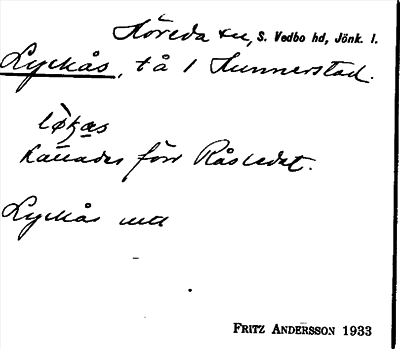 Höreda sn, S. Vedbo hd, Jönk. l.
Lyckås, tå 1 Hunnerstad.
løkas
Kallades förr Råsledet.
Lyckås
FRITZ ANDERSSON 1933